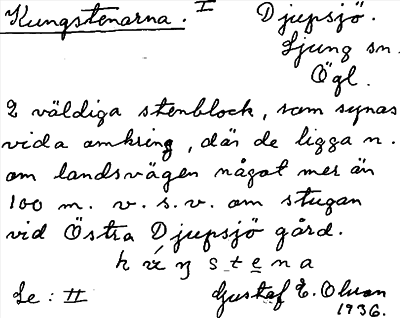 Kungstenarna. I Djupsjö.
Ljung sn.
Ögl.
2 väldiga stenblock, som synas
vida omkring, där de ligga n.
om landsvägen något mer än
100 m. v. s. v. om stugan
vid Östra Djupsjö gård.
Se: II Gustaf E. Olsson
1936.